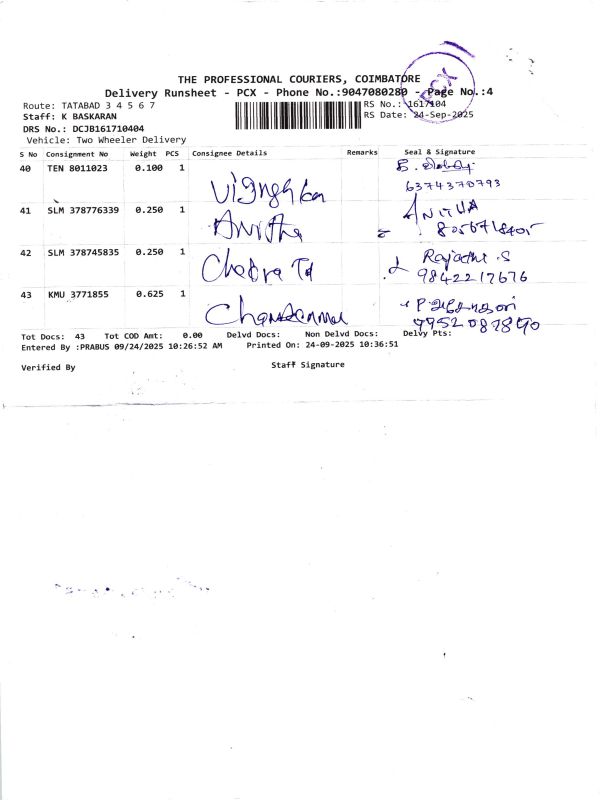 THE PROFESSIONAL COURIERS, COIMBATORE
Delivery Runsheet - PCX - Phone No.:9047080280 - Page No.:4
PCX
Route: TATABAD 3 4 5 6 7 RS No.: 1617104
Staff: K BASKARAN RS Date: 24-Sep-2025
DRS No.: DCJB161710404
Vehicle: Two Wheeler Delivery
S No Consignment No Weight PCS Consignee Details Remarks Seal & Signature
40 TEN 8011023 0.100 1
6374370793
41 SLM 378776339 0.250 1 Anitha ANITHA
42 SLM 378745835 0.250 1 Rajathi. S
9842217676
43 KMU 3771855 0.625 1
Tot Docs: 43 Tot COD Amt: 0.00 Delvd Docs: Non Delvd Docs: Delvy Pts:
Entered By :PRABUS 09/24/2025 10:26:52 AM Printed On: 24-09-2025 10:36:51
Verified By Staff Signature